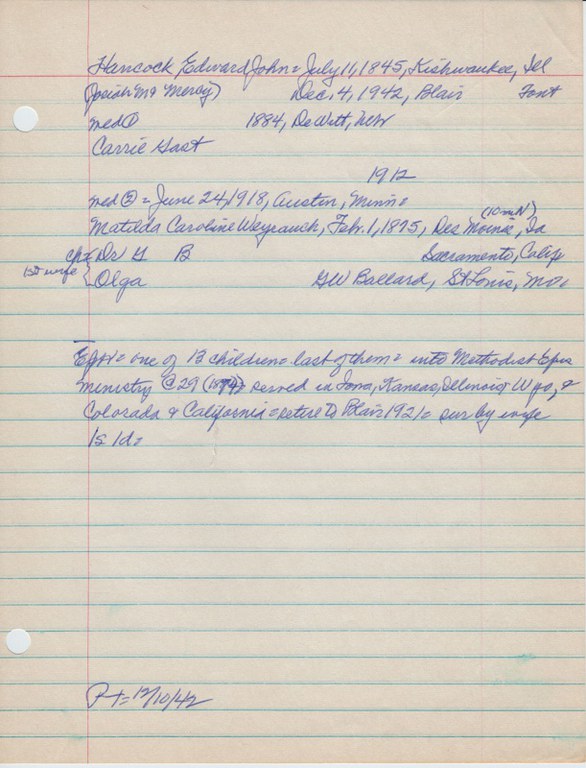 Hancock Edward John = July 11, 1845, Kishwaukee, Ill
(Josiah Mercy) Dec. 4, 1942, Blair Font
med ① 1884, DeWitt,
Carrie Gast
1912
med ② = June 24, 1918, Austin, Minn =
(10 mi N)
Matilda Caroline Weyrauch, Feb. 1, 1875, Des Moines, Ia
Dr G B Sacramento, Calif
1st wife Olga GW Ballard, St Louis, Mo.
EJH = one of 13 children = last of them = into Methodist Epis
ministry @ 29 (1874) served in Iowa, Kansas, Illinois, Wyo, &
Colorada & California = retire to Blair 1921 = sur by wife
1s 1d =
P-T = 12/10/42